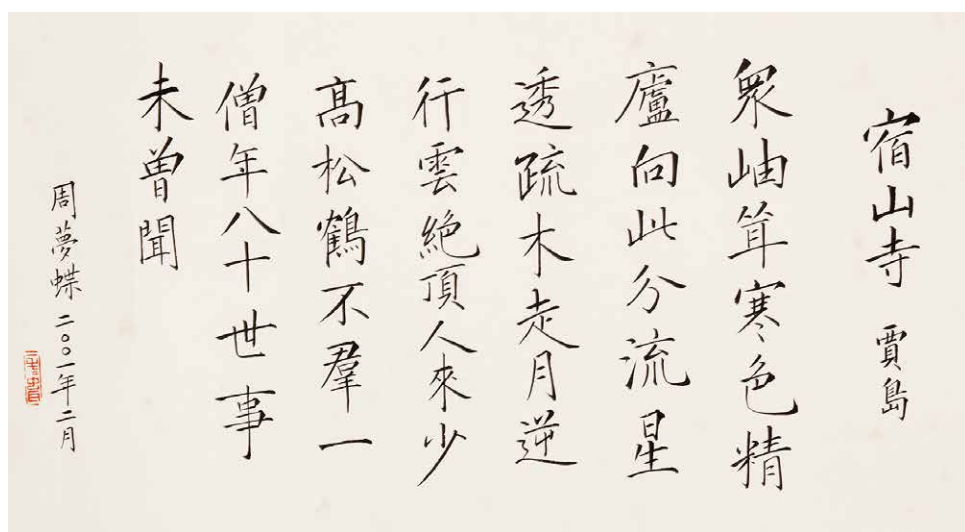 宿山寺 賈島
衆岫耸寒色精
廬向此分流星
透疏木走月逆
行雲絶頂人來少
高松鶴不羣一
僧年八十世事
未曾聞
周夢蝶二○○一年二月